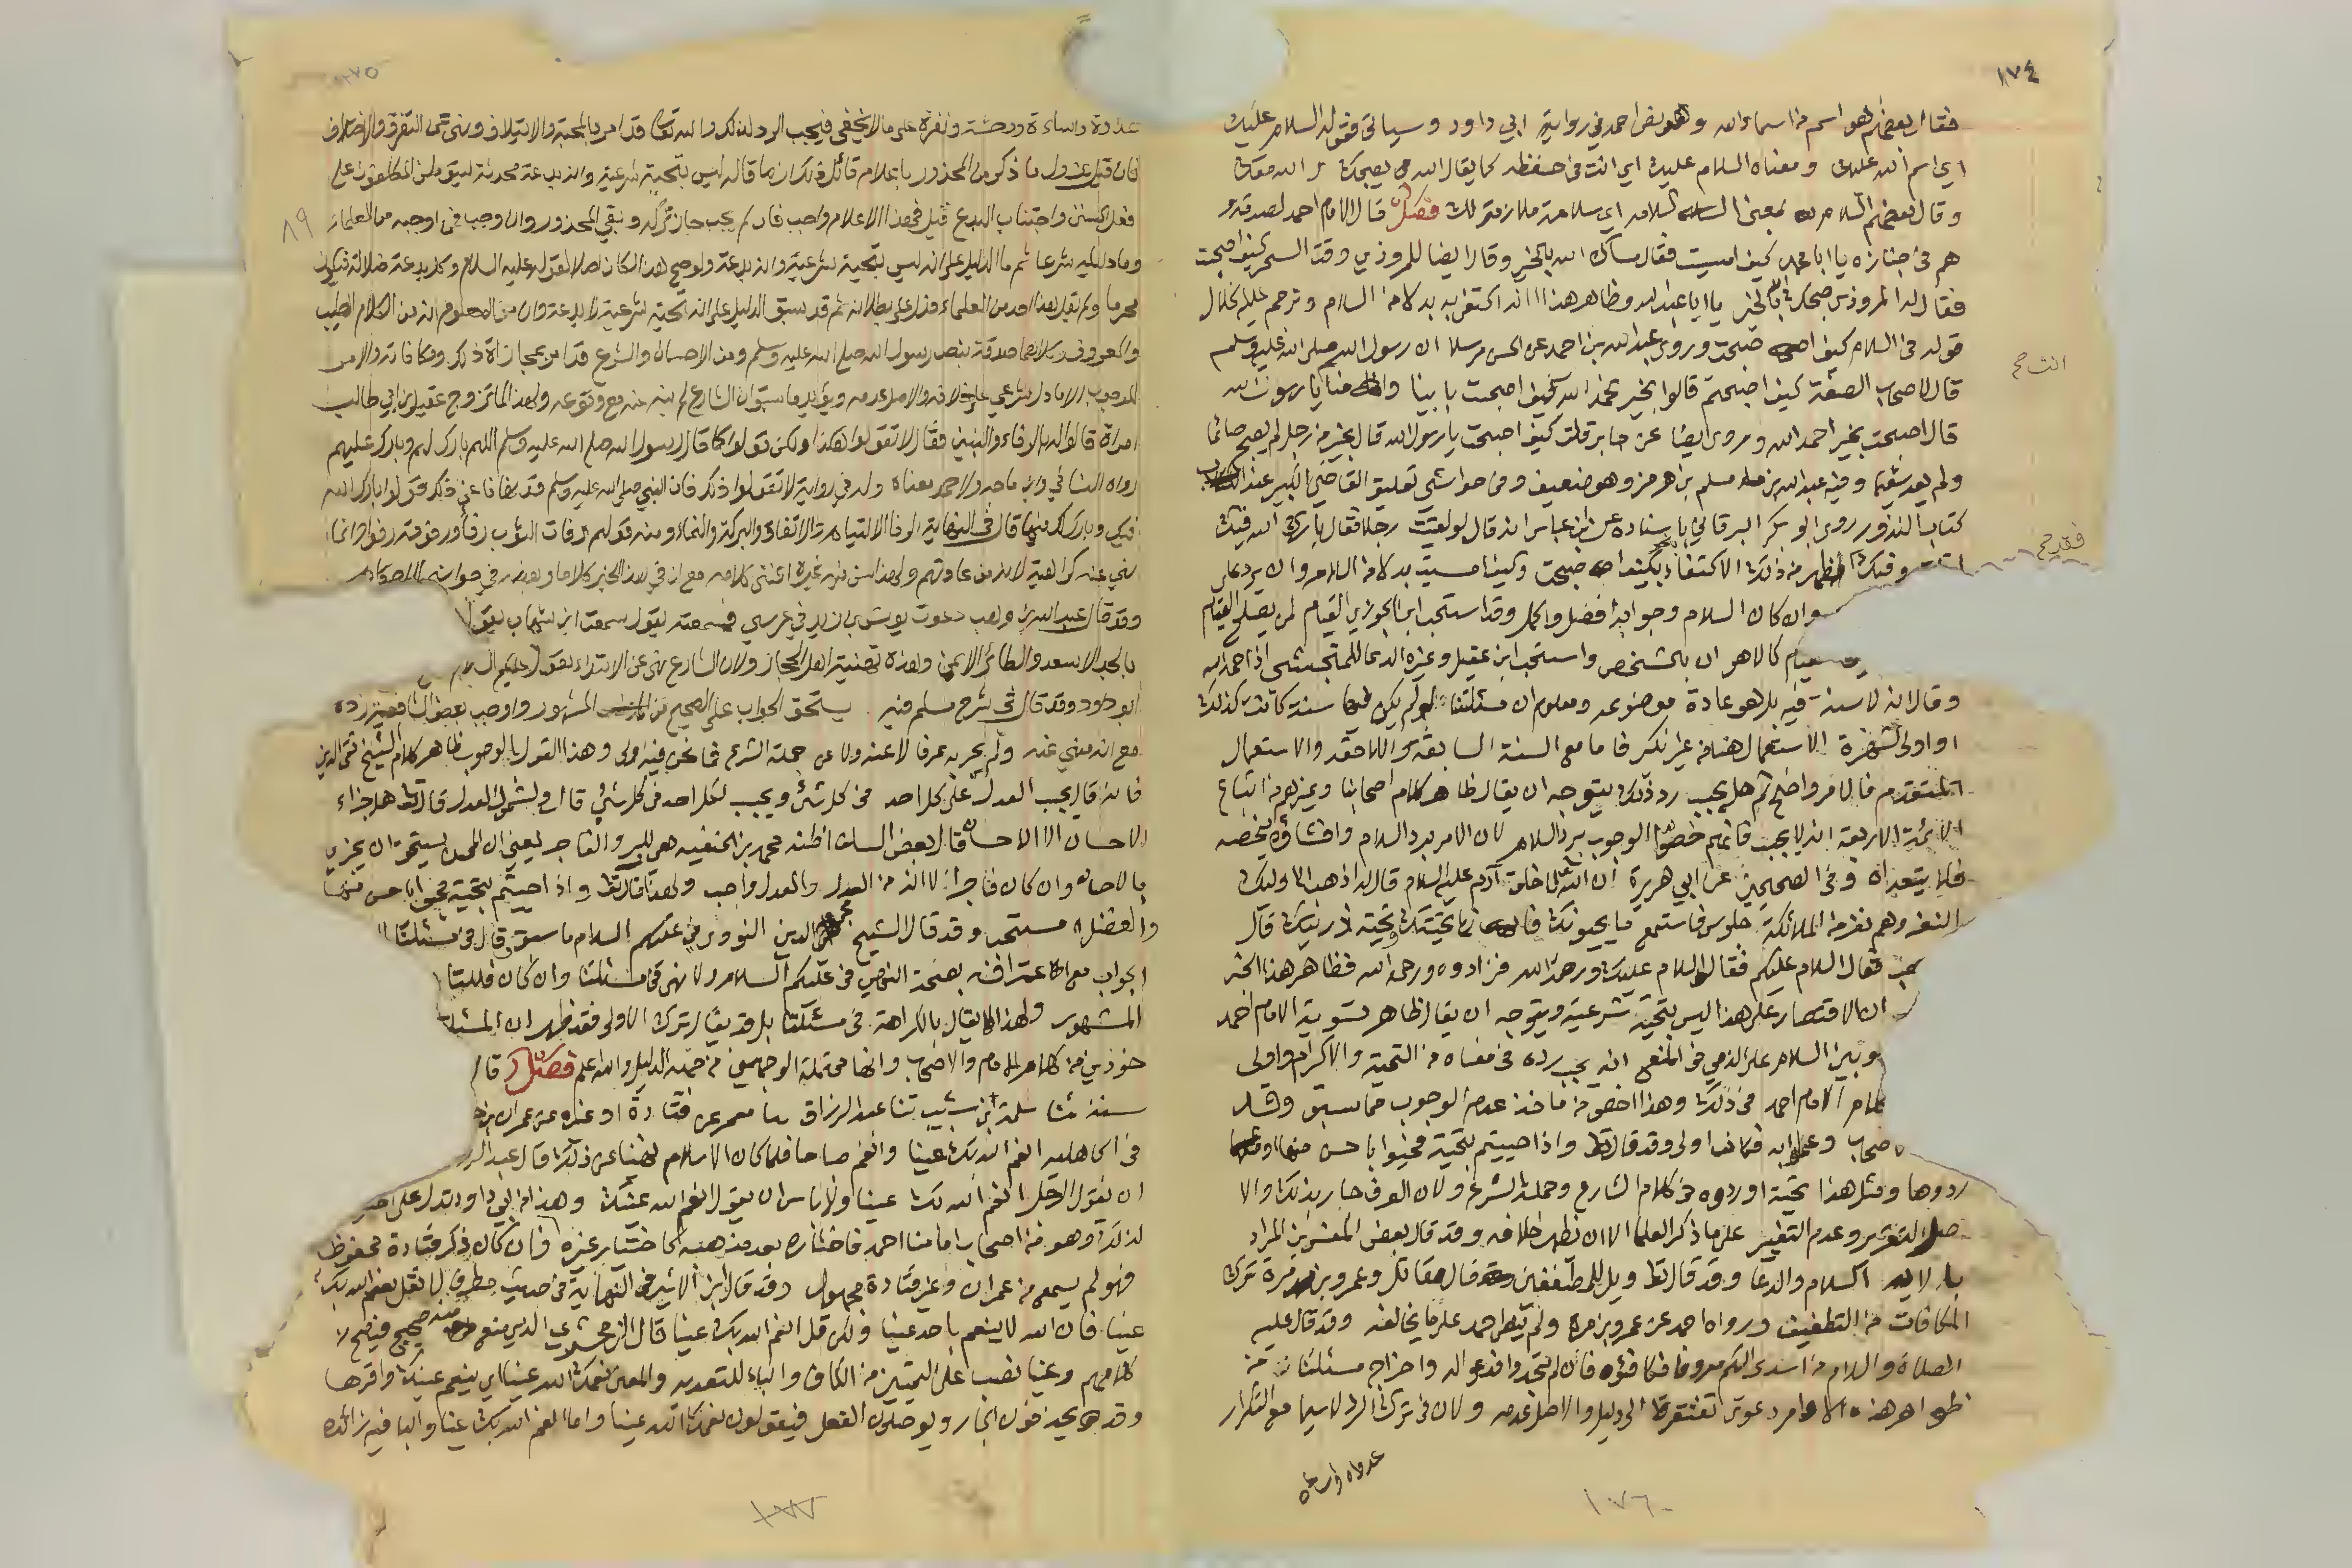 ١٧٤
فقال بعضهم هو اسم من اسماء الله وهو نص احمد في رواية ابي داود وسياتي فقوله السلام عليك
اي اسم الله عليك ومعناه السلام عليك اي انت في حفظه كما يقال الله يصحبك الله معك
وقال بعضهم السلام بمعنى السلامة اي سلامة ملازمة لك فصل قال الامام احمد لصدقة و
هم في جنازة يا ابا محمد كيف امسيت فقال مساك الله بالخير وقال ايضا للمروذي وقت السحر كيف اصبحت
فقال له المروذي صبحك الله بخير يا ابا عبد الله وظاهر هذا انه اكتفى به بدلا من السلام وترجم عليه الخلال
قوله في السلام كيف اصبحت وروى عبد الله بن احمد عن الحسن مرسلا ان رسول الله صلى الله عليه وسلم
قال لاصحاب الصفة كيف اصبحتم قالوا بخير نحمد الله كيف اصبحت بابينا وامنا يا رسول الله
قال اصبحت بخير احمد الله وروى ايضا عن جابر قلت كيف اصبحت يا رسول الله قال بخير من رجل لم يصبح صائما
ولم يعد سقيما وفيه عبد الله بن مسلم بن هرمز وهو ضعيف وفي حواشي تعليق القاضي الكبير عند
كتاب النذور روى ابو بكر البرقاني باسناده عن ابن عباس انه قال لو لقيت رجلا فقال بارك الله فيك
لقلت وفيك فظهر من ذلك الاكتفاء بكيف اصبحت وكيف امسيت بدلا من السلام وانه يرد على
وان كان السلام وجوابه افضل واكمل وقد استحب ابن الجوزي القيام لمن يصلح القيام
كالاهوان بالشخص واستحب ابن عقيل وغيره الدعا للمتجشي اذا حمد الله
وقال انه لا سنة فيه بل هو عادة موضوعة ومعلوم ان مسئلتنا لو لم يكن فيها سنة كانت كذلك
او اولى لشهرة الاستعمال هنا من غير نكير فاما مع السنة السابقة واللاحقة والاستعمال
المتقدم فالامر واضح ثم هل يجب رد ذلك يتوجه ان يقال ظاهر كلام اصحابنا وغيرهم من اتباع
الائمة الاربعة انه لا يجب فانهم خصوا الوجوب برد السلام لان الامر برد السلام وافشاؤه يخصه
فلا يتعداه وفي الصحيحين عن ابي هريرة ان الله لما خلق آدم عليه السلام قال له اذهب الى اوليك
النفر وهم نفر من الملائكة جلوس فاستمع ما يحيونك فانها تحيتك وتحية ذريتك قال
فذهب فقال السلام عليكم فقالوا السلام عليك ورحمة الله فزادوه ورحمة الله فظاهر هذا الخبر
ان الاقتصار على هذا ليس بتحية شرعية ويتوجه ان يقال ظاهر تسوية الامام احمد
وبين السلام على الذمي في المنع انه يجب رده في معناه من التحية والاكرام واولى
كلام الامام احمد في ذلك وهذا اخص من ماخذ عدم الوجوب مما سبق
وقد قال تعالى واذا حييتم بتحية فحيوا باحسن منها او
ردوها ومثل هذا تحية اوردوه في كلام الشارع وحملة الشرع ولان العرف جار بذلك والا
صل التقرير وعدم التغيير على ما ذكر العلما الا ان يظهر خلافه وقد قال بعض المفسرين المراد
بالاية السلام والدعا وقد قال تعالى ويل للمطففين قال مقاتل وعمرو بن مرة ترك
المكافات من التطفيف ورواه احمد عن عمرو بن مرة ولم يظهر احمد على ما يخالفه وقد قال عليه
الصلاة والسلام من اسدى اليكم معروفا فكافئوه فان لم تجدوا فادعوا له واخراج مسئلتنا من
ظواهر هذه الاوامر دعوى تفتقر الى دليل والاصل عدمه ولان في ترك الرد لا سيما مع التكرار
عداوة واساءة
عداوة واساءة ووحشة ونفرة على ما لا يخفى فيجب الرد لذلك والله تعالى قد امر بالمحبة والايتلاف ونهى عن التفرق والاختلاف
فان قيل يزول ما ذكر من المحذور باعلام قائل ذلك ان ما قاله ليس بتحية شرعية وانه بدعة محدثة
فعل السنن واجتناب البدع قيل فهذا الاعلام واجب فان لم يجب جاز تركه وبقي المحذور وان وجب
وما دليله شرعا ثم ما الدليل على انه ليس بتحية شرعية وانه بدعة ولو صح هذا لكان ضلالا لقوله عليه السلام وكل بدعة ضلالة فيكون
محرما ولم يقل بهذا احد من العلماء فدل على بطلانه ثم قد سبق الدليل على انه تحية شرعية لا بدعة وان من المعلوم انه من الكلام الطيب
والمعروف صدقة بنص رسول الله صلى الله عليه وسلم ومن الاحسان والشرع قد امر بمجازاة ذلك ومكافاته والامر
للوجوب الا بدليل شرعي على خلافه والاصل عدمه ويؤيد ما سبق ان الشارع لم ينه عنه مع وقوعه ولهذا لما تزوج عقيل بن ابي طالب
امراة قالوا له بالرفاء والبنين فقال لا تقولوا هكذا ولكن قولوا كما قال رسول الله صلى الله عليه وسلم اللهم بارك لهم وبارك عليهم
رواه النسائي وابن ماجه ولاحمد معناه وله في رواية لا تقولوا ذلك فان النبي صلى الله عليه وسلم قد نهانا عن ذلك قولوا بارك الله
فيك وبارك لك فيها قال في النهاية الرفا الالتيام والاتفاق والبركة والنماء ومنه قولهم رفات الثوب رفأ ورفوته رفوا وانما
نهى عنه كراهية لانه من عادتهم ولهذا سن فيه غيره
وقد قال عبد الله بن وهب دعوت يونس بن يزيد في عرسي فسمعته يقول سمعت ابن شهاب يقول
بالجد الاسعد والطائر الايمن وهذه تهنية اهل الحجاز ولان الشارع نهى عن الابتداء بقول عليكم السلام
ابو داود وقد قال في شرح مسلم فيه يستحق الجواب على الصحيح المشهور واوجب بعض الشافعية رده
مع انه منهي عنه ولم يجر به عرف لا عنه ولا عن حملة الشرع فما نحن فيه اولى وهذا القول بالوجوب ظاهر كلام الشيخ تقي الدين
فانه قال يجب العدل على كل احد في كل شئ ويجب لكل احد في كل شئ قال تعالى هل جزاء
الاحسان الا الاحسان قال بعض السلف اظنه محمد بن الحنفية هي للبر والفاجر يعني ان المحسن يستحق ان يجزى
بالاحسان وان كان فاجرا لانه من العدل والعدل واجب ولهذا قال تعالى واذا حييتم بتحية فحيوا باحسن منها
والفضل مستحب وقد قال الشيخ محيي الدين النووي في عليكم السلام ما سبق وقال في مسئلتنا
الجواب مع اعترافه بصحة النهي في عليكم السلام ولا نهي في مسئلتنا وان كان فللبتا
المشهور ولهذا لا يقال بالكراهة في مسئلتنا بل قد يقال ترك الاولى فقد ظهر ان المسئلة
خوذين من كلام الامام والاصحاب وانها محتملة الوجهين من جهة الدليل والله اعلم فصل قال
سننه ثنا سلمة بن شبيب ثنا عبد الرزاق نا معمر عن قتادة او غيره عن عمران بن
في الجاهلية انعم الله بك عينا وانعم صباحا فلما كان الاسلام نهينا عن ذلك قال عبد الرزاق
ان يقول الرجل انعم الله بك عينا ولا باس ان يقول انعم الله عينك وهذا من ابي داود يدل على
لذلك وهو من اصحاب امامنا احمد فاختياره بعد مذهبه كاختيار غيره فان كان ذكر قتادة محفوظا
فهو لم يسمع من عمران وغير قتادة مجهول وقد قال ابن الاثير في النهاية في حديث مطرف لا تقل نعم الله بك
عينا فان الله لا ينعم باحد عينا ولكن قل انعم الله بك عينا قال الزمخشري الذي منع منه صحيح فصيح
كلامهم وعينا نصب على التمييز من الكاف والباء للتعدية والمعنى نعمك الله عينا اي نعم عينك واقرها
وقد يحذفون الجار ويوصلون الفعل فيقولون نعمك الله عينا واما انعم الله بك عينا والبا فيه زائدة
٨٩